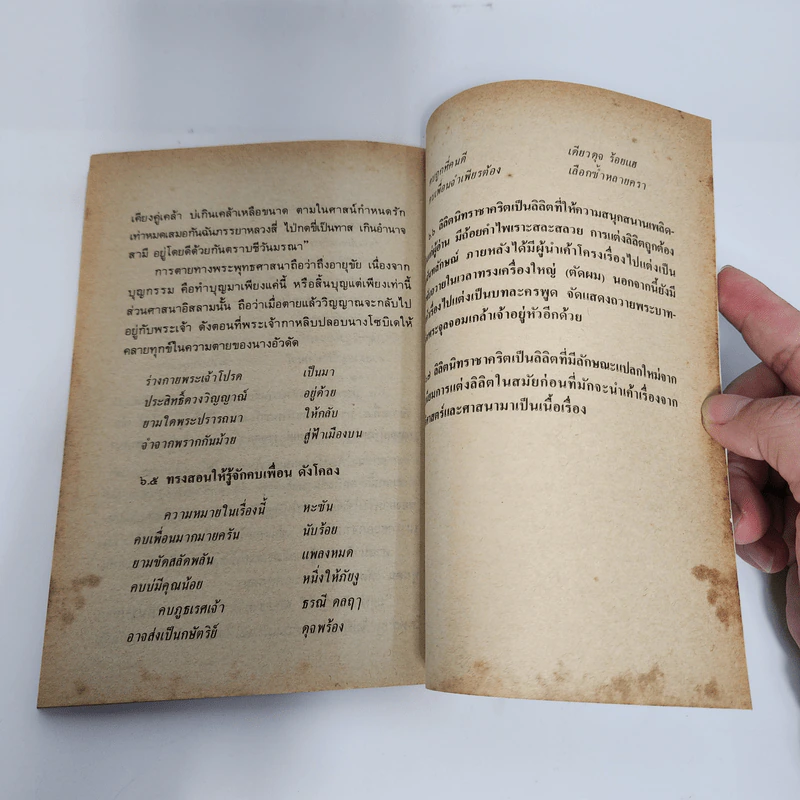 เคียงคู่เคล้า บ่เกินเคล้าเหลือขนาด ตามในศาสน์กำหนดรัก
เท่าหมดเสมอกันฉันภรรยาหลวงสี่ ไปกดขี่เป็นทาส เกินอำนาจ
สามี อยู่โดยดีด้วยกันตราบชีวันมรณา”
การตายทางพระพุทธศาสนาถือว่าถึงอายุขัย เนื่องจาก
บุญกรรม คือทำบุญมาเพียงแค่นี้ หรือสิ้นบุญแต่เพียงเท่านี้
ส่วนศาสนาอิสลามนั้น ถือว่าเมื่อตายแล้ววิญญาณจะกลับไป
อยู่กับพระเจ้า ดังตอนที่พระเจ้ากาหลิบปลอบนางโซบิเดให้
คลายทุกข์ในความตายของนางอัวดัด
ร่างกายพระเจ้าโปรด เป็นมา
ประสิทธิ์ดวงวิญญาณ์ อยู่ด้วย
ยามใดพระปรารถนา ให้กลับ
จำจากพรากกันม้วย สู่ฟ้าเมืองบน
๖.๕ ทรงสอนให้รู้จักคบเพื่อน ดังโคลง
ความหมายในเรื่องนี้ หะซัน
คบเพื่อนมากมายครัน นับร้อย
ยามขัดสลัดพลัน แพลงหมด
คบบ่มีคุณน้อย หนึ่งให้ภัยงู
คบภูธเรศเจ้า ธรณี ดลฤๅ
อาจส่งเป็นกษัตริย์ ดุจพร้อง
ถูกที่คนดี เดียวดุจ ร้อยแฮ
เพื่อนจำเพียรต้อง เลือกซ้ำหลายครา
ลิลิตนิทราชาคริตเป็นลิลิตที่ให้ความสนุกสนานเพลิด-
ผู้อ่าน มีถ้อยคำไพเราะสละสลวย การแต่งลิลิตถูกต้อง
ลักษณ์ ภายหลังได้มีผู้นำเค้าโครงเรื่องไปแต่งเป็น
ถวายในเวลาทรงเครื่องใหญ่ (ตัดผม) นอกจากนี้ยังมี
เรื่องไปแต่งเป็นบทละครพูด จัดแสดงถวายพระบาท-
พระจุลจอมเกล้าเจ้าอยู่หัวอีกด้วย
ลิลิตนิทราชาคริตเป็นลิลิตที่มีลักษณะแปลกใหม่จาก
นิยมการแต่งลิลิตในสมัยก่อนที่มักจะนำเค้าเรื่องจาก
ศาสตร์และศาสนามาเป็นเนื้อเรื่อง